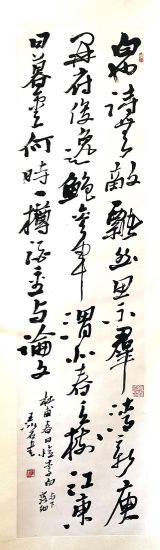 白也詩無敵飄然思不羣清新庾
開府俊逸鮑參軍渭北春天樹江東
日暮雲何時一樽酒重与論文
杜甫春日憶李白
与下落細